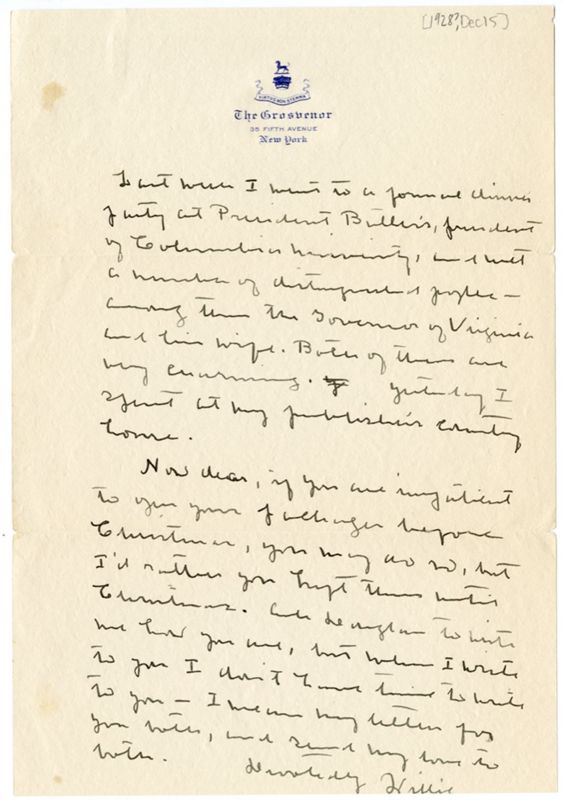 [1928?, Dec 15]
VIRTUTE NON STEMMA
The Grosvenor
35 FIFTH AVENUE
New York
Last week I went to a formal dinner
party at President Butler's, president
of Columbia University, and met
a number of distinguished people —
among them the Governor of Virginia
and his wife. Both of them are
very charming. yesterday I
spent at my publisher's country
house.
Now dear, if you are impatient
to open your packages before
Christmas, you may do so, but
I'd rather you kept them until
Christmas. Ask Douglass to write
me how you are, but when I write
to you I don't have time to write
to you — I mean my letters for
you both, and send my love to
both. Devotedly Willie